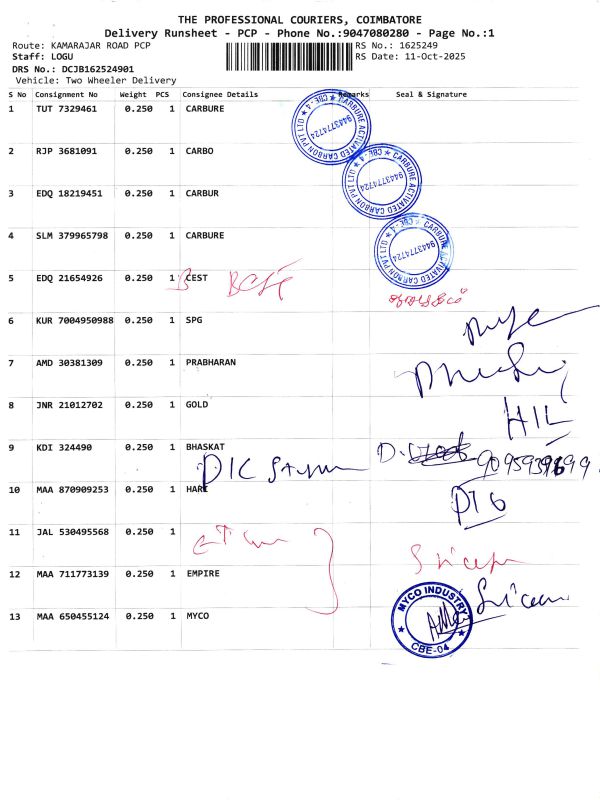 THE PROFESSIONAL COURIERS, COIMBATORE
Delivery Runsheet - PCP - Phone No.:9047080280 - Page No.:1
Route: KAMARAJAR ROAD PCP RS No.: 1625249
Staff: LOGU RS Date: 11-Oct-2025
DRS No.: DCJB162524901
Vehicle: Two Wheeler Delivery
S No Consignment No Weight PCS Consignee Details Remarks Seal & Signature
1 TUT 7329461 0.250 1 CARBURE
CARBURE ACTIVATED CARBON PVT LTD ★ CBE-4 ★ 9443774724
2 RJP 3681091 0.250 1 CARBO
CARBURE ACTIVATED CARBON PVT LTD ★ CBE-4 ★ 9443774724
3 EDQ 18219451 0.250 1 CARBUR
4 SLM 379965798 0.250 1 CARBURE
CARBURE ACTIVATED CARBON PVT LTD ★ CBE-4 ★ 9443774724
5 EDQ 21654926 0.250 1 CEST
6 KUR 7004950988 0.250 1 SPG
7 AMD 30381309 0.250 1 PRABHARAN
8 JNR 21012702 0.250 1 GOLD
HIL
9 KDI 324490 0.250 1 BHASKAT
10 MAA 870909253 0.250 1 HARE
11 JAL 530495568 0.250 1
12 MAA 711773139 0.250 1 EMPIRE
13 MAA 650455124 0.250 1 MYCO
★ MYCO INDUSTRY ★ CBE-04